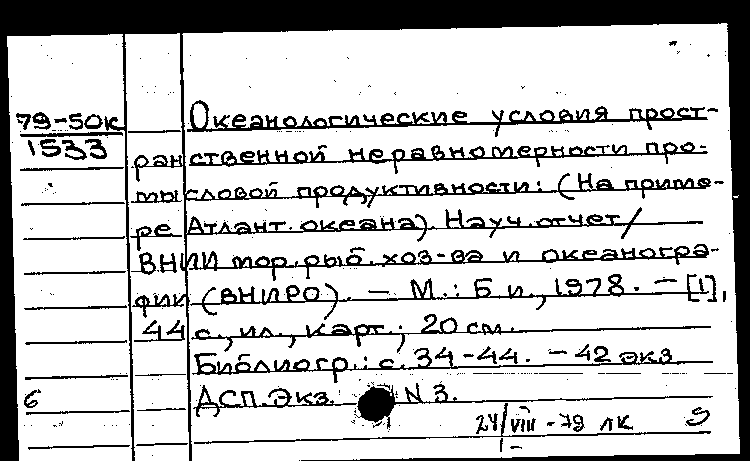 79-50к
1533
Океанологические условия прост-
ранственной неравномерности про-
мысловой продуктивности: (На приме-
ре Атлант. океана). Науч. отчет/
ВНИИ мор. рыб. хоз-ва и океаногра-
фии (ВНИРО). — М.: Б и., 1978. — [1],
44 с., ил., карт.; 20 см.
Библиогр.: с. 34-44. — 42 экз.
6
ДСП. Экз. N 3.
24/VIII - 79 лк